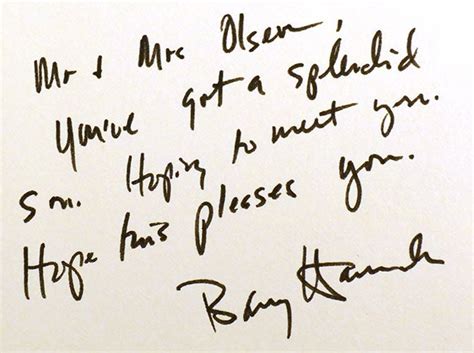 Mr + Mrs Olsen,
You've got a splendid
son. Hoping to meet you.
Hope this pleases you.
Barry Hannah